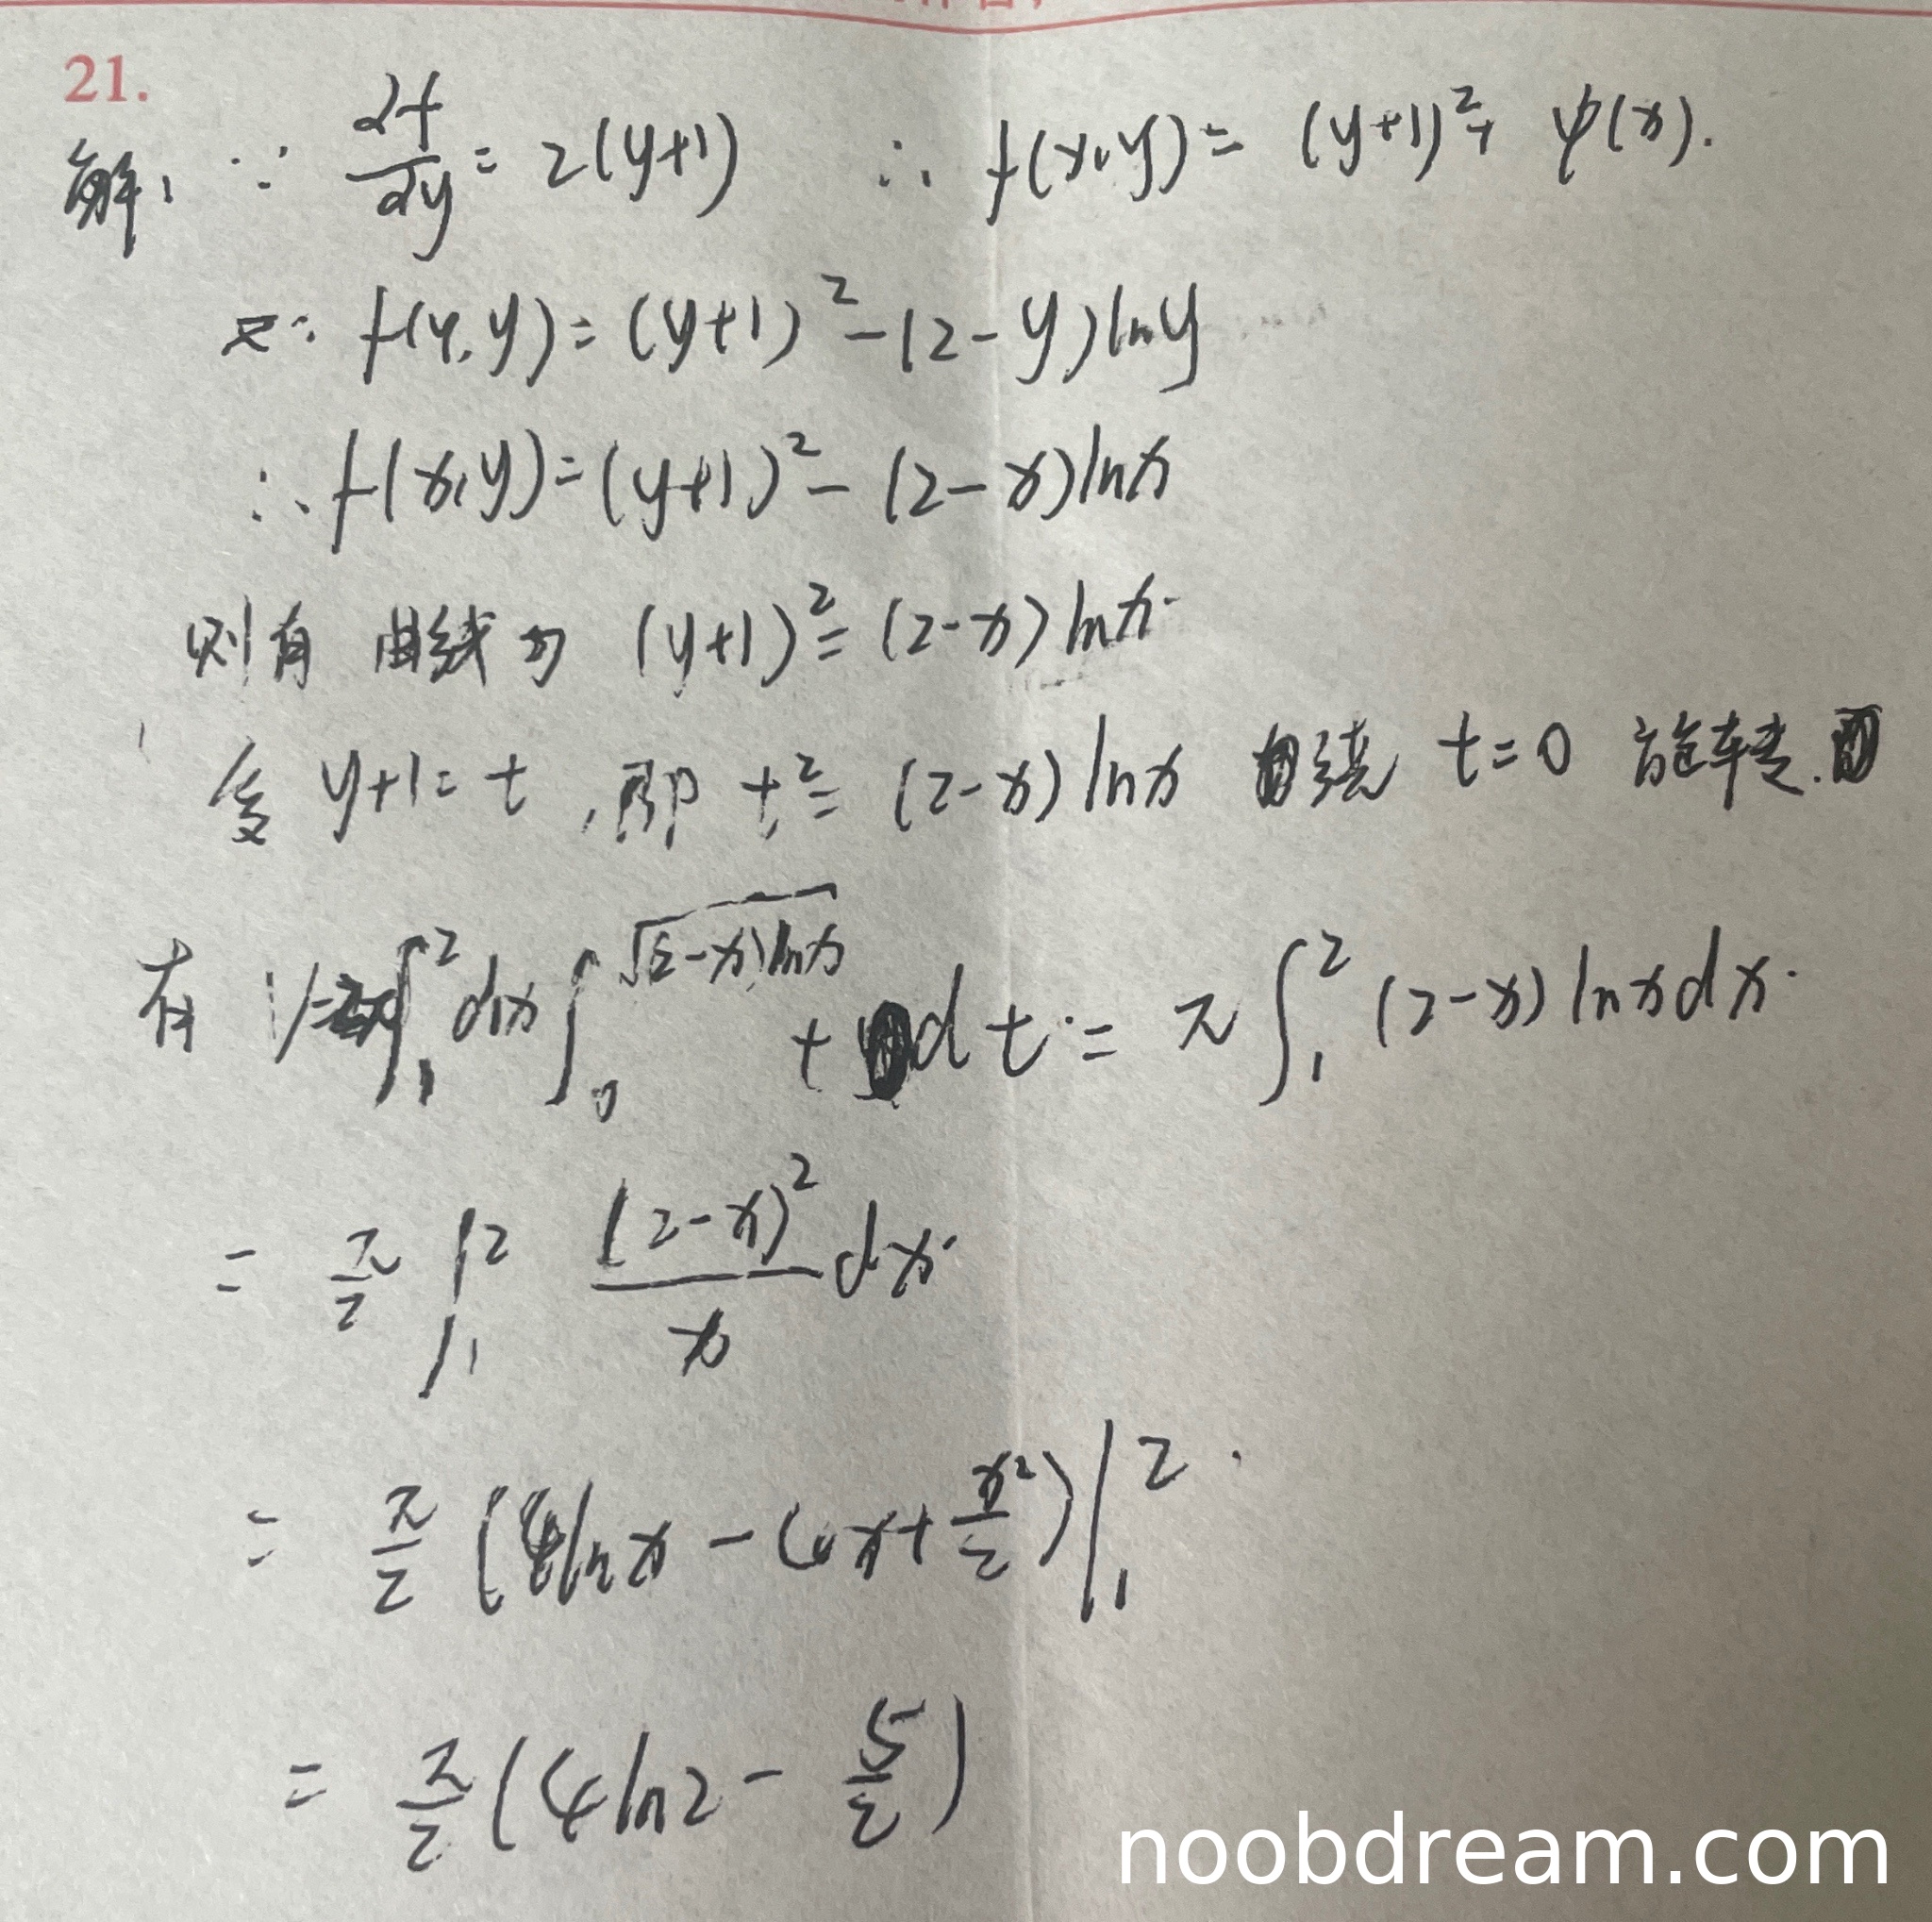 21.
解: ∵ ∂f/∂y = 2(y+1) ∴ f(x,y) = (y+1)² + φ(x).
又∵ f(y,y) = (y+1)² - (2-y)lny
∴ f(x,y) = (y+1)² - (2-x)lnx
则有 曲线为 (y+1)² = (2-x)lnx.
令 y+1 = t, 即 t² = (2-x)lnx 绕 t=0 旋转.
有 V = ∫₁² dx ∫₀^√((2-x)lnx) t dt = π∫₁² (2-x)lnxdx.
= π/2 ∫₁² (2-x)²/x dx.
= π/2 (4lnx - 4x + x²/2)|₁².
= π/2 (4ln2 - 5/2)
noobdream.com